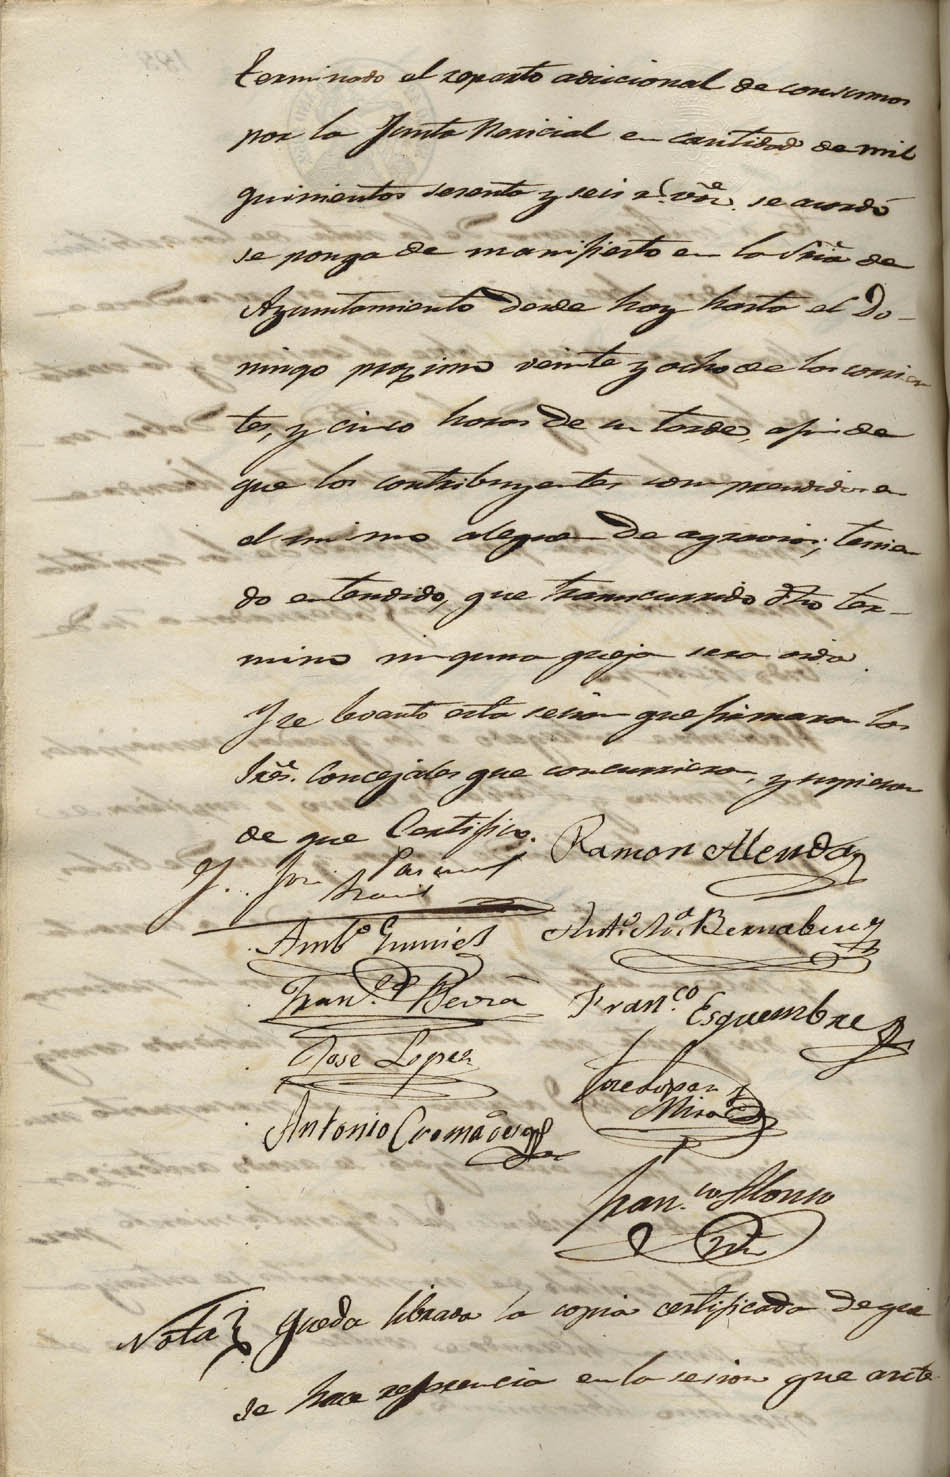 terminado el reparto adicional de consumos
por la Junta Pericial en cantidad de mil
quinientos sesenta y seis r.s v.n se acordó
se ponga de manifiesto en la Sria de
Ayuntamiento desde hoy hasta el Do-
mingo proximo veinte y ocho de los corrien
tes, y cinco horas de su tarde, afin de
que los contribuyentes comprendidos en
el mismo aleguen de agravios; tenien
do entendido, que transcurrido dho ter-
mino ninguna queja sera oida.
Y se levantó esta sesion que firmaron los
Sres. Concejales que concurrieron, y supieron
de que Certifico.
Ramon Alenda
Amb.o Gumiel
Ant.o M.a Bernabeu
Fran.co Berná
Fran.co Esquembre
Jose Lopez
Jose Lopez
Mira
Antonio Cremades
Fran.co Alonso
Nota Queda librada la copia certificada de que
se hace referencia en la sesion que ante